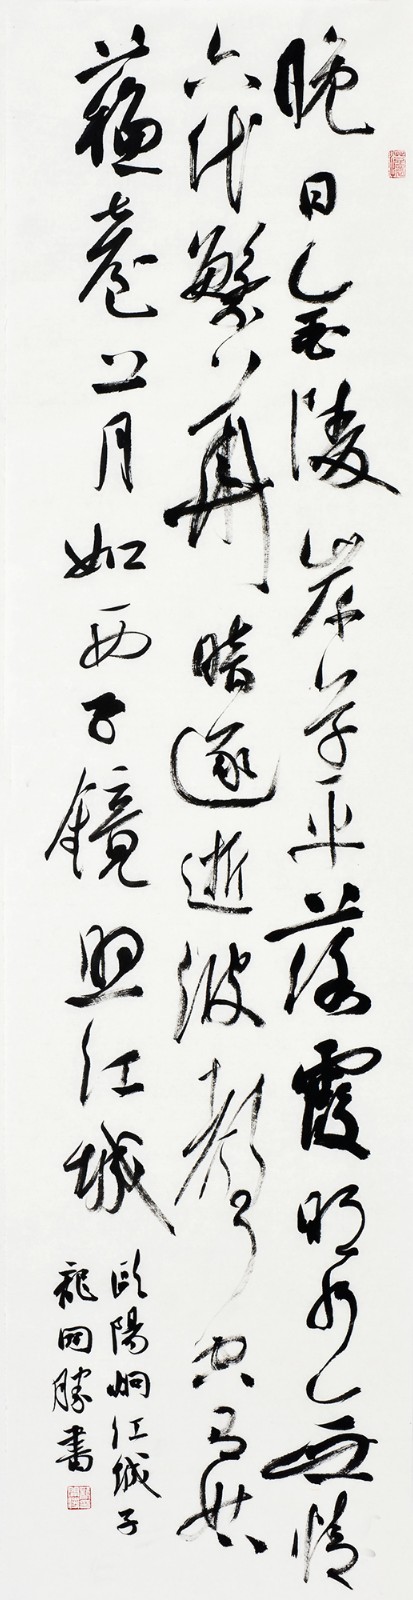 晚日金陵岸草平落霞明水無情
六代繁華暗逐逝波聲空有姑
蘇臺上月如西子鏡照江城
歐陽炯江城子
龍開勝書